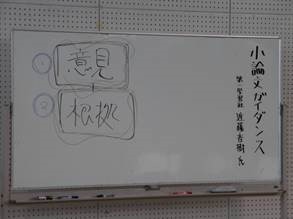 小論文ガイダンス
第一学習社 近藤吉樹氏
① 意見
② 根拠